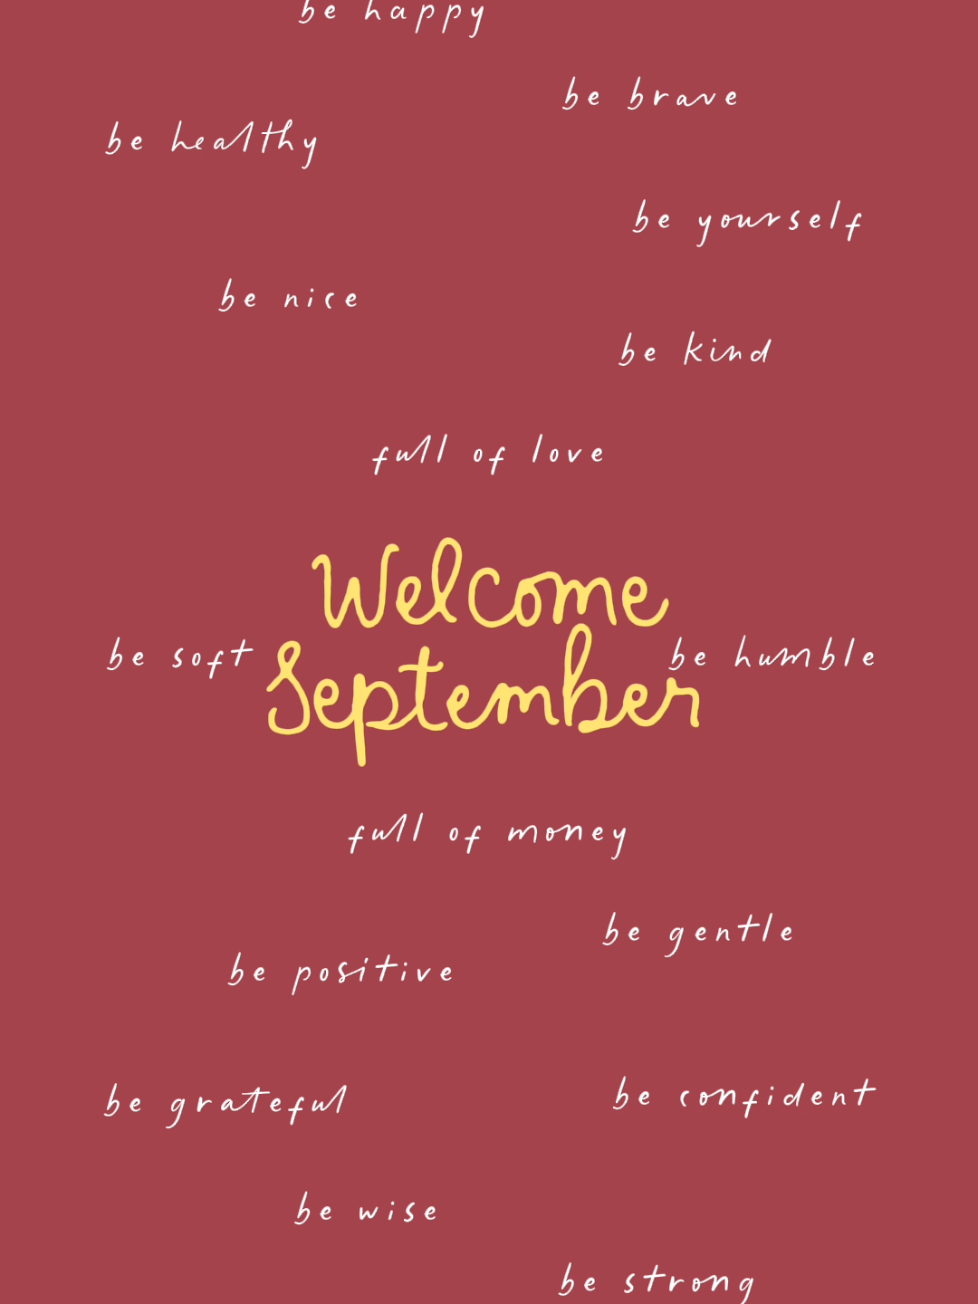 be happy
be brave
be healthy
be yourself
be nice
be kind
full of love
Welcome
be soft
be humble
September
full of money
be gentle
be positive
be confident
be grateful
be wise
be strong